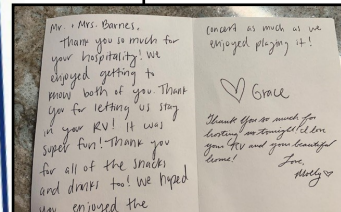 Mr. + Mrs. Barnes,
Thank you so much for
your hospitality! We
enjoyed getting to
know both of you. Thank
you for letting us stay
in your RV! It was
super fun! Thank you
for all of the snacks
and drinks too! We hoped
you enjoyed the
concert as much as we
enjoyed playing it!
♡ Grace
Thank you so much for
hosting us tonight! I love
your RV and your beautiful
home!
Love,
Molly ♡